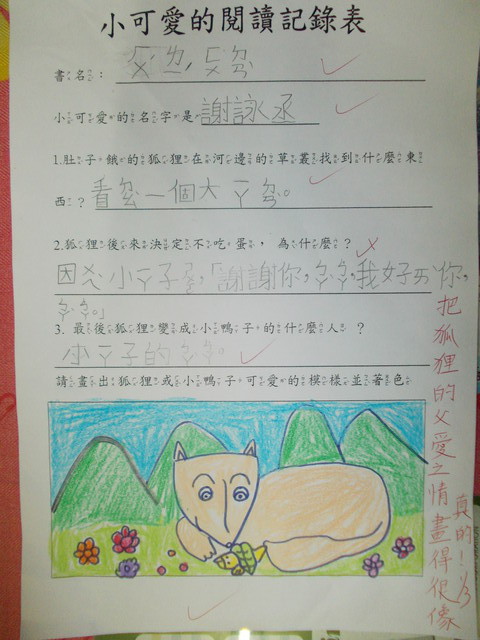 小可愛的閱讀記錄表
書名：ㄏㄨˊ ㄌㄧˊ ㄅㄚˋ
小可愛的名字是謝詠丞
1.肚子餓的狐狸在河邊的草叢找到什麼東
西？看 一個大ㄧㄚ 。
2.狐狸後來決定不吃蛋，為什麼？
因 小ㄧㄚ子 ，「謝謝你，ㄅㄚˋㄅㄚˋ，我好ㄞˋ你，
ㄅㄚˋㄅㄚˋ。」
3. 最後狐狸變成小鴨子的什麼人？
小ㄧㄚ子的ㄅㄚˋㄅㄚˋ
請畫出狐狸或小鴨子可愛的模樣並著色
把狐狸的父愛之情畫得很像
真的！1/3